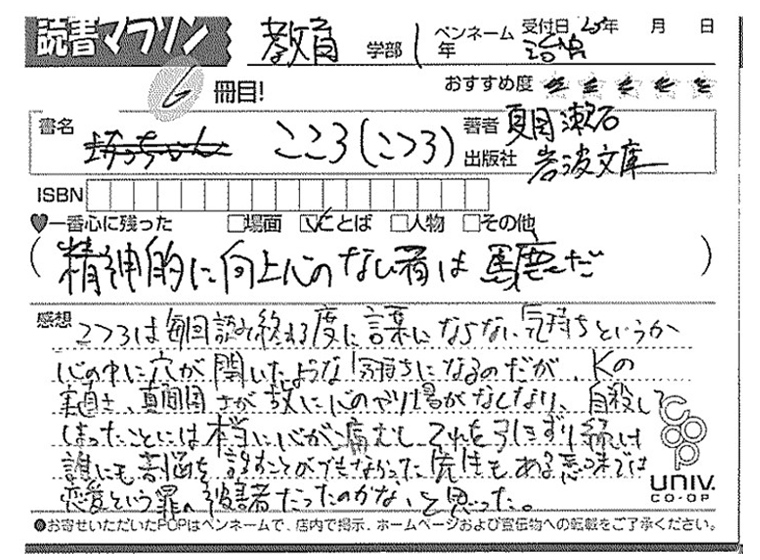 読書マラソン 教育 学部 1 年 ペンネーム 受付日 25年 月 日
6 冊目! おすすめ度 ★★★★★
書名 坊っちゃん こころ(こゝろ) 著者 夏目漱石
出版社 岩波文庫
ISBN
♥一番心に残った □場面 ☑ことば □人物 □その他
(精神的に向上心のない者は馬鹿だ)
感想 こゝろは毎回読み終わる度に言葉にならない気持ちというか
心の中に穴が開いたような気持ちになるのだが、Kの
実直さ、真面目さが故に心のやり場がなくなり、自殺して
しまったことには本当に心が痛むし、それを引きずり続け
誰にも苦悩を話すことができなかった先生もある意味では
恋愛という罪の被害者だったのかな、と思った。
UNIV.
CO-OP
●お寄せいただいたPOPはペンネームで、店内で掲示、ホームページおよび宣伝物への転載をご了承ください。